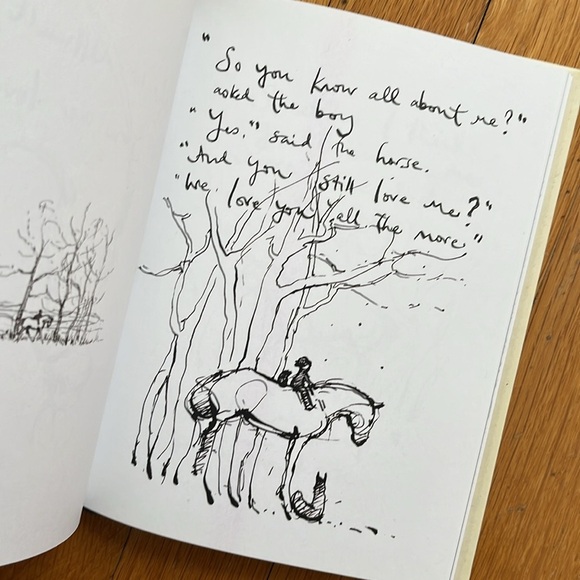 "So you know all about me?"
asked the boy
"Yes," said the horse.
"And you still love me?"
"We love you all the more"